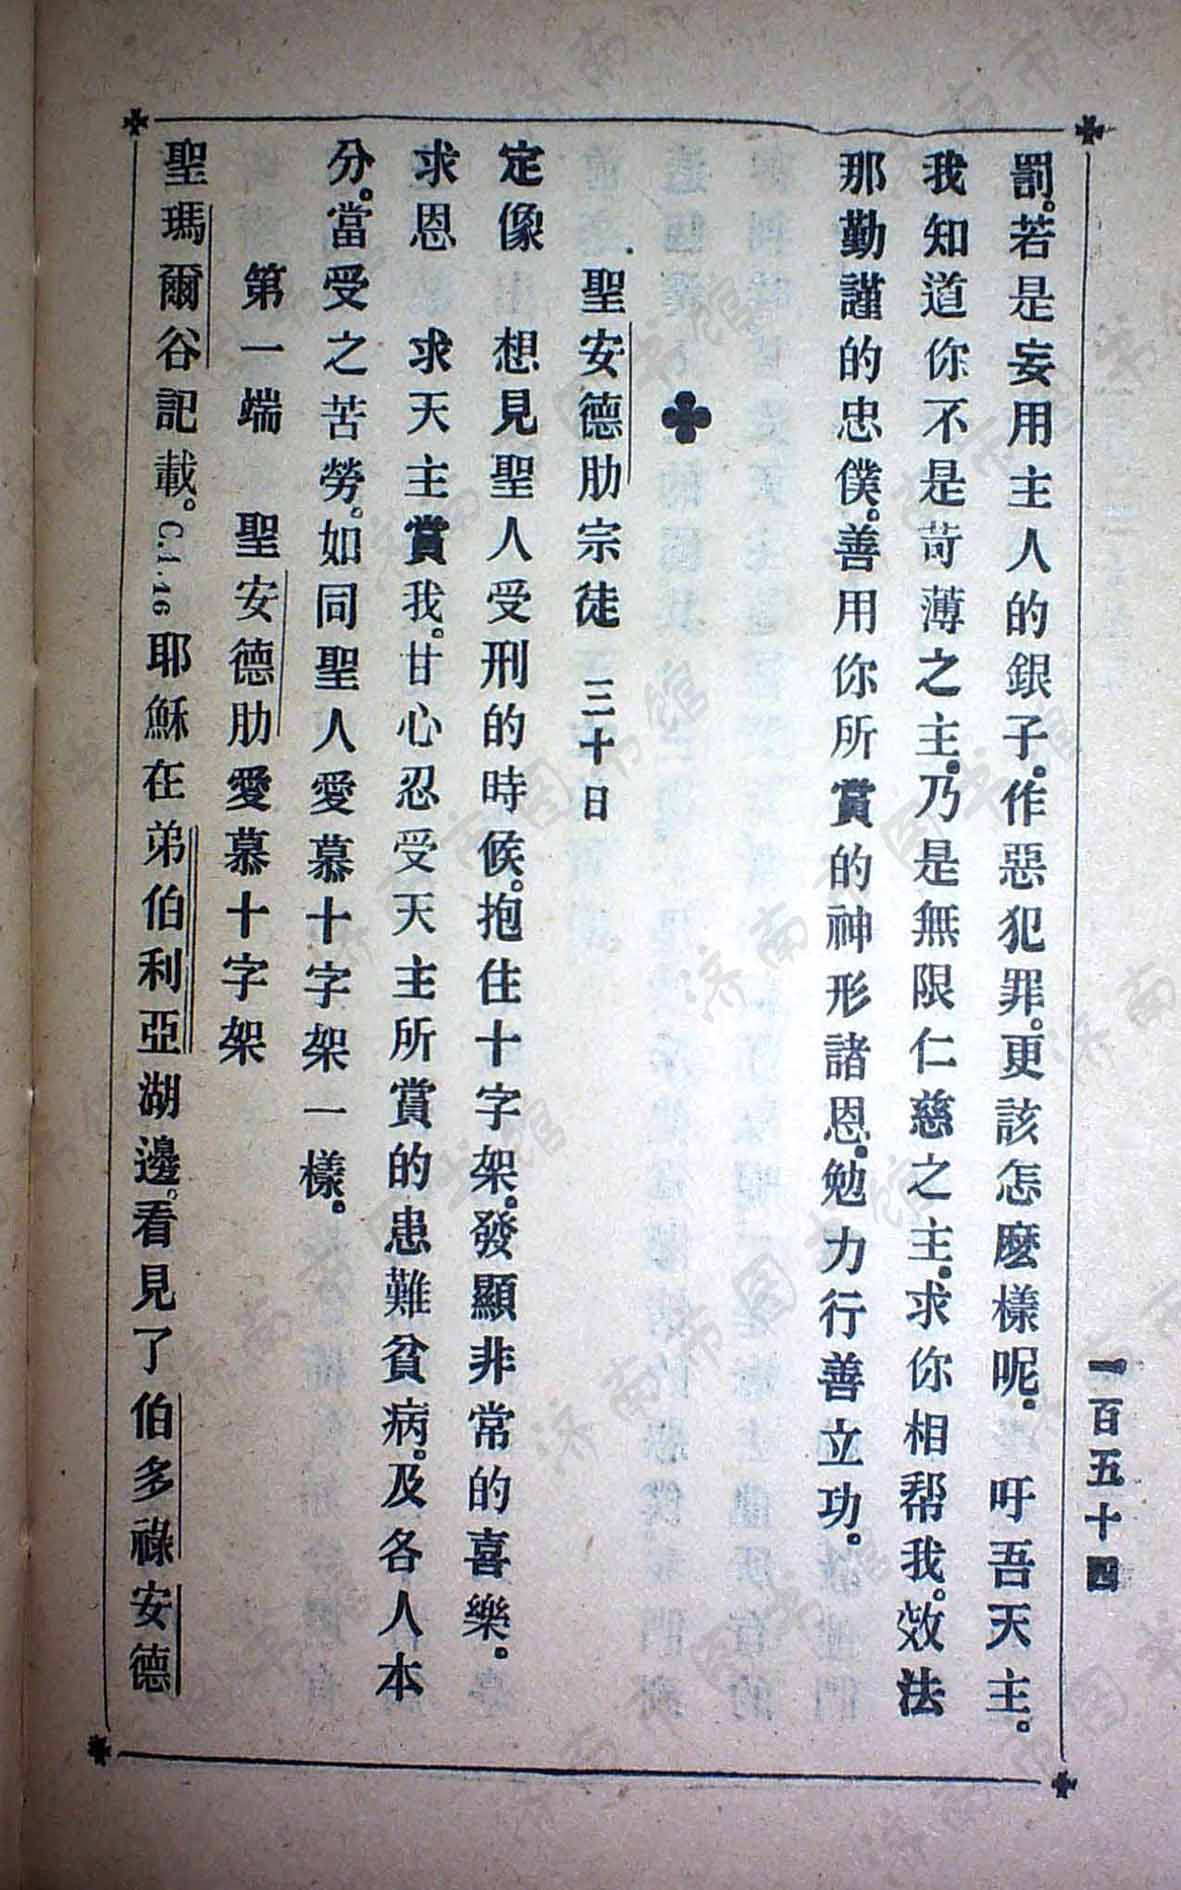 罰。若是妄用主人的銀子。作惡犯罪。更該怎麽樣呢。吁吾天主。
我知道你不是苛薄之主。乃是無限仁慈之主。求你相帮我。效法
那勤謹的忠僕。善用你所賞的神形諸恩。勉力行善立功。
聖安德肋宗徒 三十日
定像 想見聖人受刑的時候。抱住十字架。發顯非常的喜樂。
求恩 求天主賞我。甘心忍受天主所賞的患難貧病。及各人本
分。當受之苦勞。如同聖人愛慕十字架一樣。
第一端 聖安德肋愛慕十字架
聖瑪爾谷記載。C.I.16耶穌在弟伯利亞湖邊。看見了伯多祿安德
一百五十四
济南市图书馆